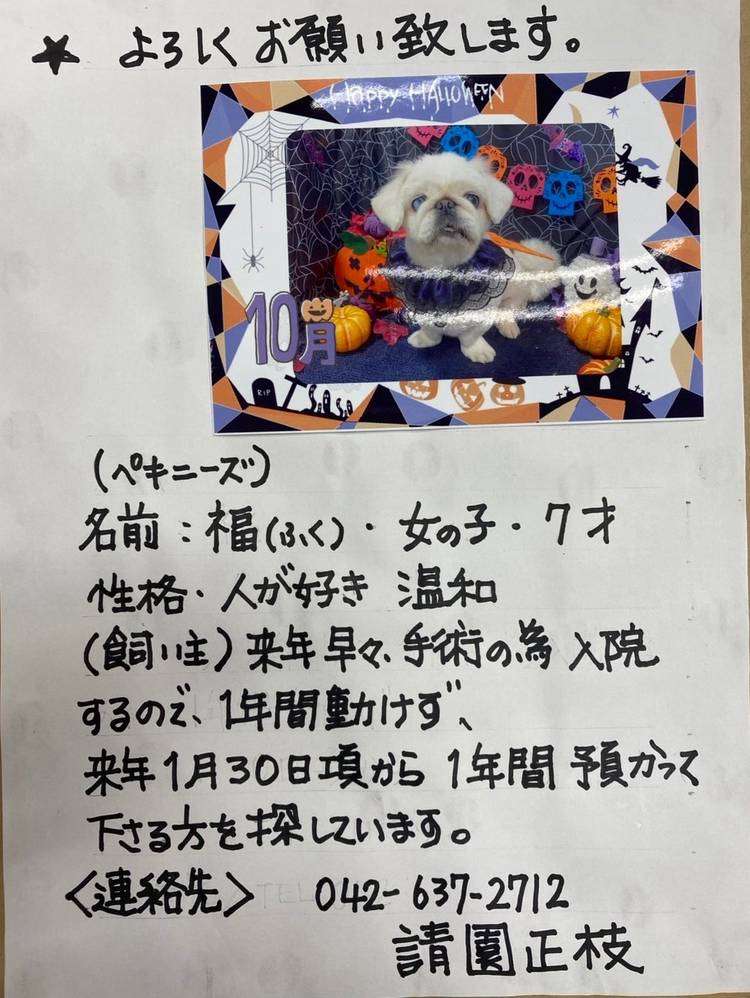 ★ よろしくお願い致します。
Happy HALLOWEEN
10月
RIP
(ペキニーズ)
名前:福(ふく)・女の子・7才
性格・人が好き 温和
(飼い主)来年早々、手術の為入院
するので、1年間動けず、
来年1月30日頃から1年間預かって
下さる方を探しています。
<連絡先> 042-637-2712
請園正枝